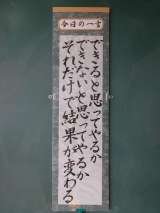 今日の一言
できると思ってやるか
できないと思ってやるか
それだけで結果が変わる